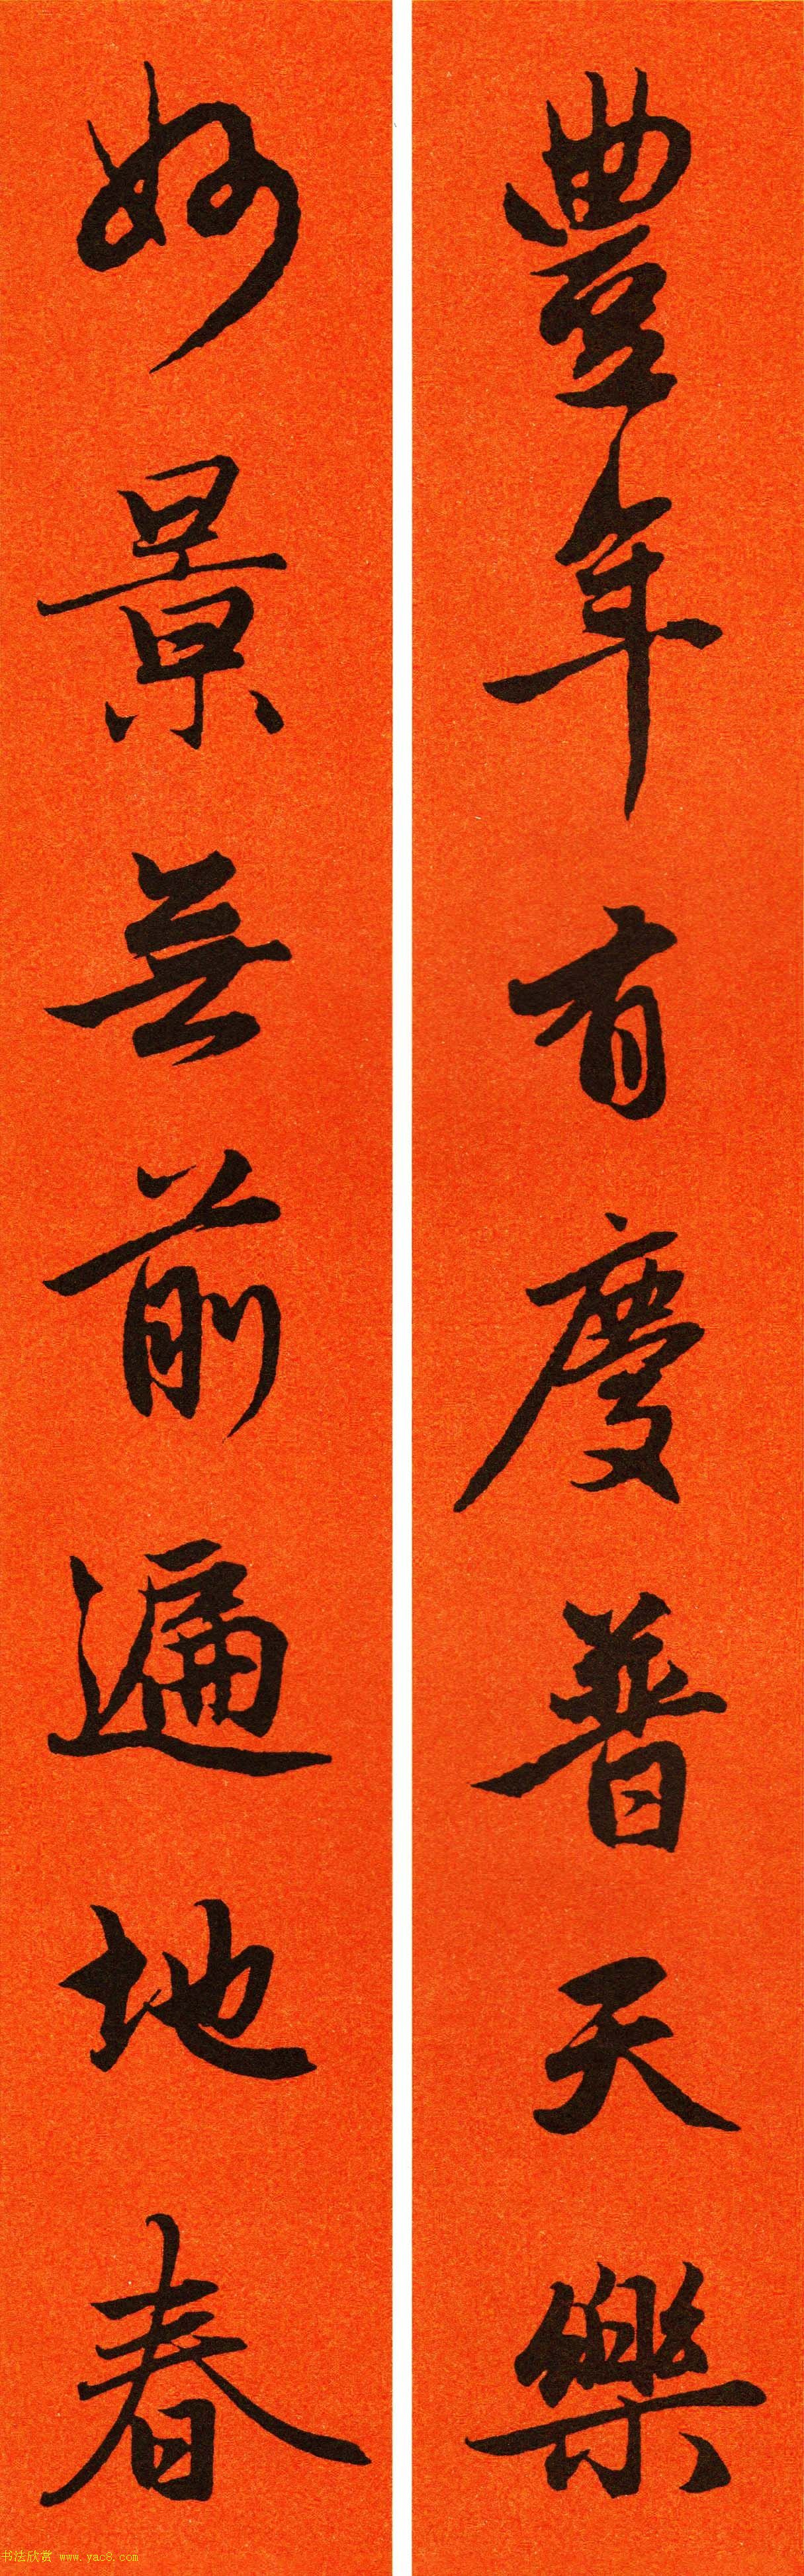 豐年有慶普天樂
好景無前遍地春
书法欣赏 www.yac8.com